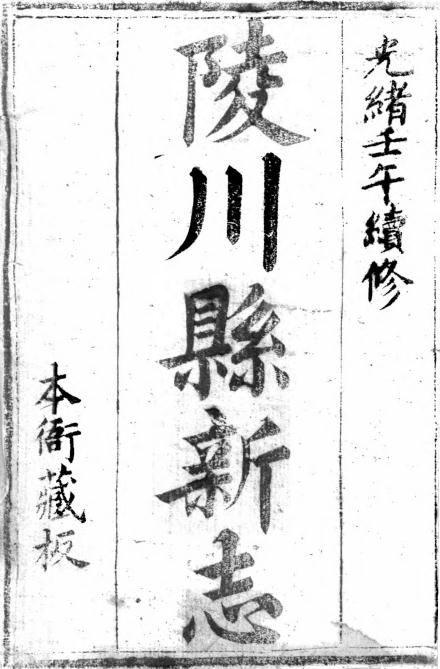 光緒壬午續修
陵川縣新志
本衙藏板